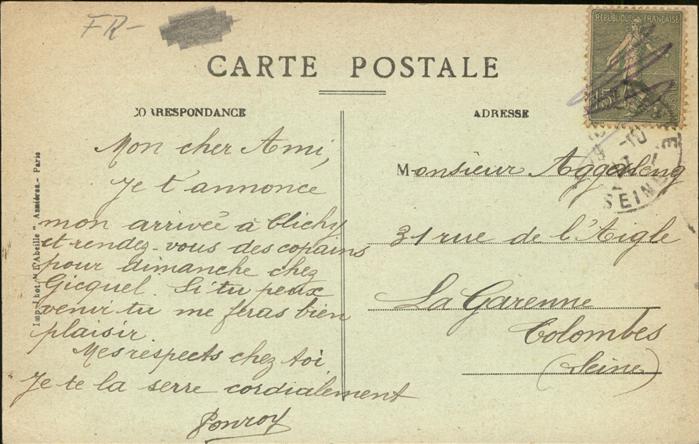 FR-
RÉPUBLIQUE FRANÇAISE
CARTE POSTALE
CORRESPONDANCE
ADRESSE
Mon cher Ami,
Je t'annonce
mon arrivée à Clichy
et rendez-vous des copains
pour dimanche chez
Gicquel. Si tu peux
venir tu me feras bien
plaisir.
Mes respects chez toi
Je te la serre cordialement
Ponroy
Monsieur
31 rue de l'Aigle
La Garenne
Colombes
(Seine)
SEINE
Imp. phot. "L'Abeille", Asnières.- Paris